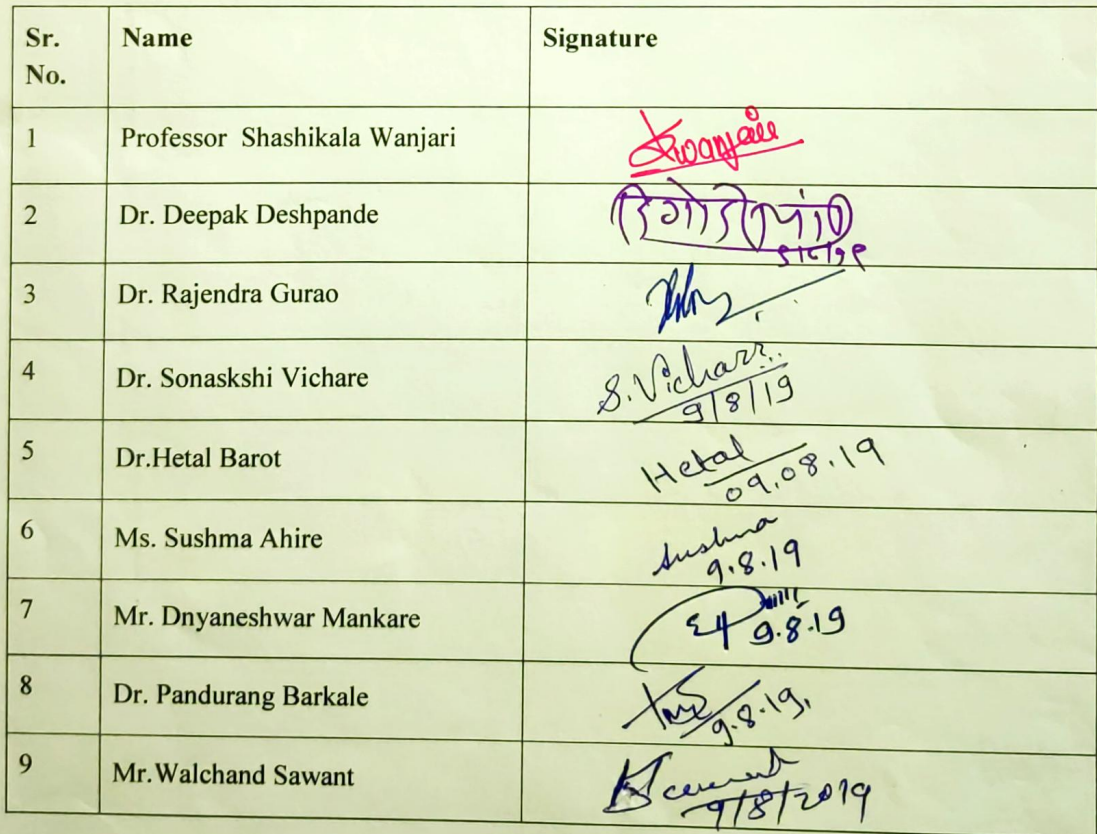 Sr. No. Name Signature
1 Professor Shashikala Wanjari Swanjari
2 Dr. Deepak Deshpande
3 Dr. Rajendra Gurao
4 Dr. Sonaskshi Vichare S. Vichare
9/8/19
5 Dr.Hetal Barot Hetal
09.08.19
6 Ms. Sushma Ahire Sushma
9.8.19
7 Mr. Dnyaneshwar Mankare 9.8.19
8 Dr. Pandurang Barkale 9.8.19,
9 Mr.Walchand Sawant
9/8/2019